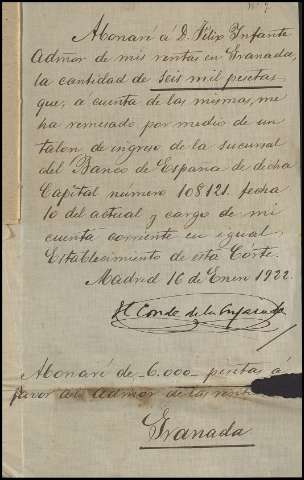 Nº 7
Abonaré á D. Félix Infante
Admor de mis rentas en Granada,
la cantidad de seis mil pesetas
que, á cuenta de las mismas, me
ha remesado por medio de un
talon de ingreso de la sucursal
del Banco de España de dicha
Capital número 108121. fecha
10 del actual y cargo de mi
cuenta corriente en igual
Establecimiento de esta Córte.
Madrid 16 de Enero 1922.
El Conde de la
Abonaré de 6.000 pesetas á
favor del Admor de las rentas
Granada